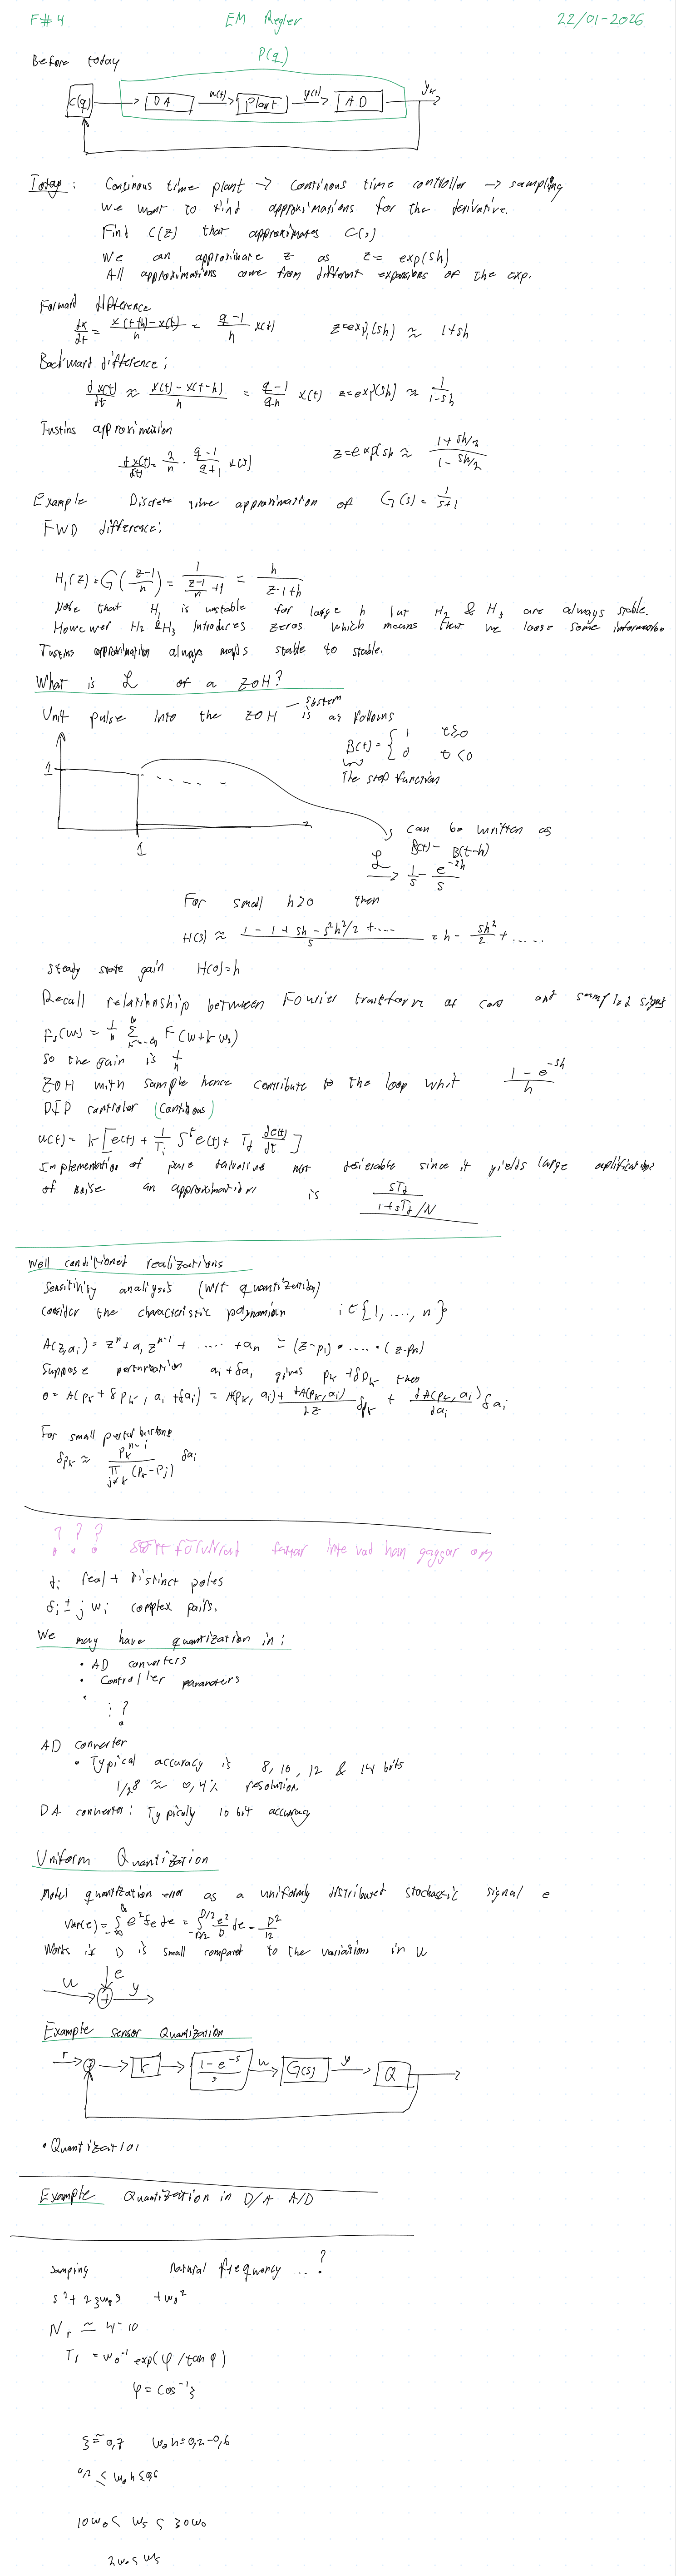 F#4 EM Regler 22/01-2026
Before today
P(q)
C(q) DA u(t) Plant y(t) AD yk
Today: Continous time plant -> Continous time controller -> sampling
We want to find approximations for the derivative.
Find C(z) that approximates C(s)
We can approximate z as z = exp(sh)
All approximations come from different expansions of the exp.
Forward difference
dx/dt = (x(t+h)-x(t))/h = (q-1)/h x(t) z=exp(sh) ≈ 1+sh
Backward difference;
dx(t)/dt ≈ (x(t)-x(t-h))/h = (q-1)/(qh) x(t) z=exp(sh) ≈ 1/(1-sh)
Tustins approximation
dx(t)/dt = 2/h · (q-1)/(q+1) x(t) z=exp(sh ≈ (1+sh/2)/(1-sh/2)
Example Discrete time approximation of G(s) = 1/(s+1)
FWD difference;
H₁(z) = G((z-1)/h) = 1/((z-1)/h +1) = h/(z-1+h)
Note that H₁ is unstable for large h but H₂ & H₃ are always stable.
However H₂ & H₃ Introduces zeros which means that we loose some information
Tustins approximation always maps stable to stable.
What is ℒ of a ZOH?
Unit pulse into the ZOH is as follows
System
B(t) = { 1 t≥0
0 t<0
The step function
1
1
can be written as
B(t) - B(t-h)
ℒ → 1/s - e^-sh/s
For small h>0 then
H(s) ≈ (1-1+sh-s²h²/2+....)/s = h - sh²/2 + ......
Steady state gain H(0)=h
Recall relationship between Fourier transform of cont and sampled signal
Fs(ω) = 1/h Σ F(ω+kωs)
So the gain is 1/h
ZOH with sample hence contribute to the loop whit (1-e^-sh)/h
PID controler (Continous)
u(t) = K[e(t) + 1/Ti ∫^t e(t) + Td de(t)/dt]
Implementation of pure derivative not desierable since it yields large aplification
of noise an approximation is sTd/(1+sTd/N)
Well conditionet realizations
Sensitivity analysis (wrt quantization)
Consider the characteristic polynomian i∈{1, ...., n}
A(z,ai) = z^n + a₁ z^n-1 + ..... + an = (z-p₁)·....·(z-pn)
Suppose perturbation ai+δai gives pk+δpk then
0 = A(pk+δpk, ai+δai) = A(pk, ai) + dA(pk,ai)/dz δpk + dA(pk,ai)/dai δai
For small perturbations
δpk ≈ pk^n-i / Π j≠k (pk-pj) δai
? ? ?
fattar inte vad han gaggar om
σi real + distinct poles
σi ± jωi complex pairs.
We may have quantization in;
• AD converters
• Controller parameters
• ⋮ ?
AD converter
• Typical accuracy is 8, 10, 12 & 14 bits
1/2⁸ ≈ 0,4% resolution.
DA converter: Typicly 10 bit accuracy
Uniform Quantization
Model quantization error as a uniformly distributet stochastic signal e
Var(e) = ∫ e² fe de = ∫ e²/D de = D²/12
Works if D is small compared to the variations in u
u e y
Example sensor Quantization
r K (1-e^-s)/s u G(s) y Q
• Quantization
Example Quantization in D/A A/D
Sampling Natural frequency ... ?
s² + 2ξω₀s + ω₀²
Nr ≈ 4-10
Tr = ω₀⁻¹ exp(φ/tan φ)
φ = cos⁻¹ξ
ξ = 0,7 ω₀h = 0,2-0,6
0,2 ≤ ω₀h ≤ 0,6
10ω₀ < ωs < 30ω₀
2ω₀ < ωs